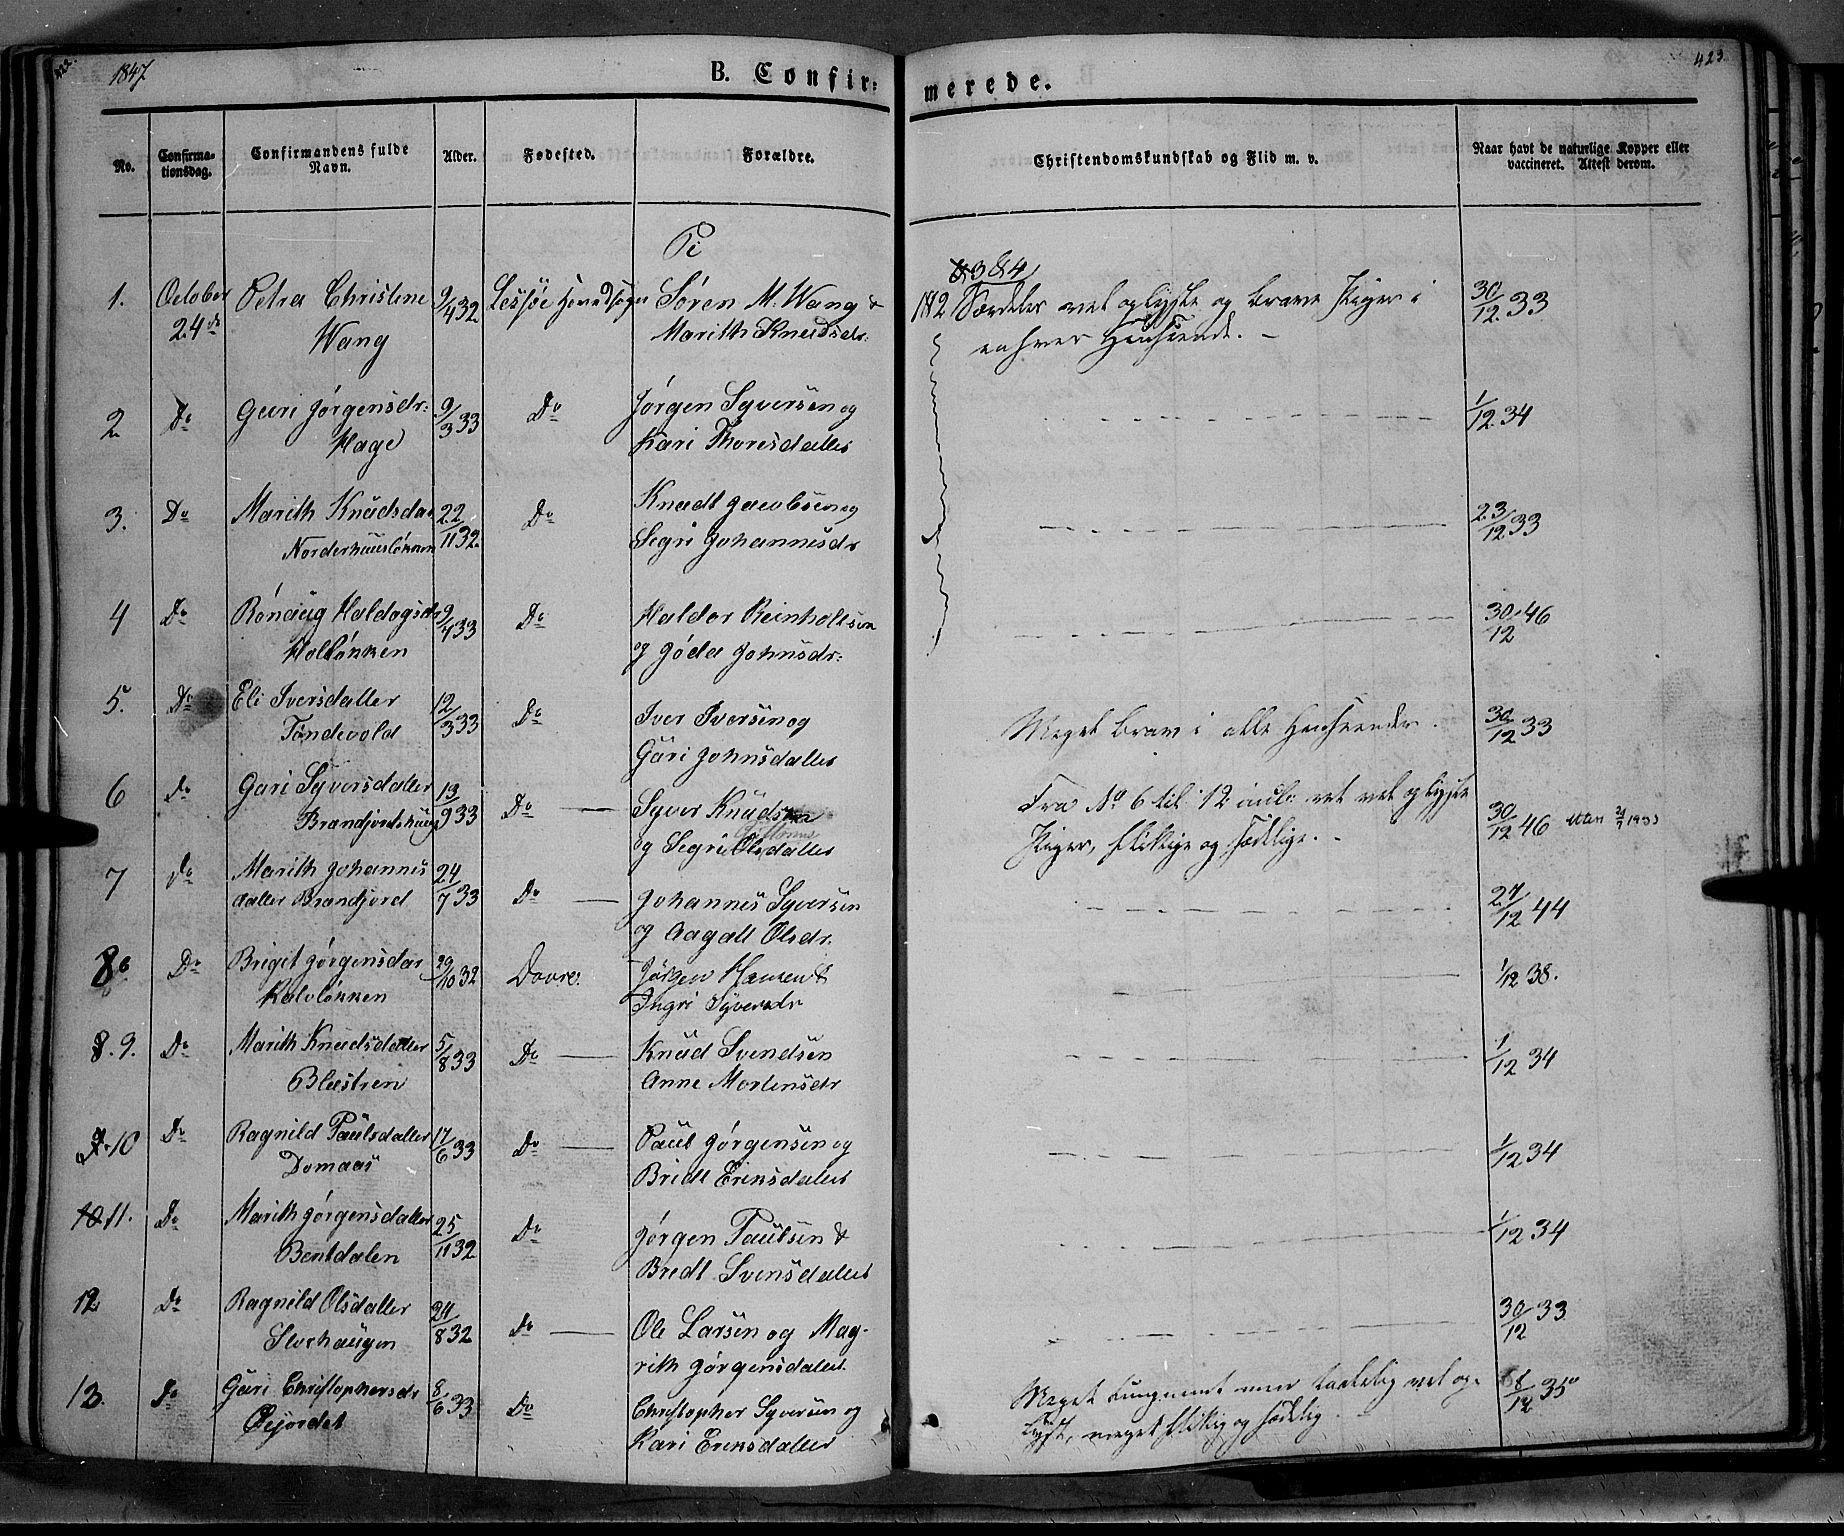 422.
1847
B. Confir:
merede.
423
No.
Confirma-
tionsdag.
Confirmandens fulde
Navn.
Alder.
Fødested.
Forældre.
Christendomskundskab og Flid m. v.
Naar havt de naturlige Kopper eller
vaccineret. Attest derom.
Pi
1. October Petra Christine 9/4 32 Lessøe Hovedsogn Søren M. Wang &
24de Wang Marith Knudsdr:
3 & 4
1 & 2 Særdeles vel oplyste og brave Piger i 30/12 33
enhver Henseende. –
2. Do Guri Jørgensdr: 9/3 33 Do Jørgen Syversen og
Hage Kari Thoresdatter
1/12 34
3. Do Marith Knudsdtr 22/11 32 Do Knudt Jacobsen og
Norderhuusløkken Segri Johannesdr
23/12 33
4 Do Rønaug Haldogsdr 9/4 33 Do Haldor Reinholtsen
Holløkken og Jøda Johnsdr:
30/12 46
5. Do Eli Iversdatter 12/3 33 Do Iver Iversen og
Tøndevold Guri Johnsdatter
Meget brav i alle Henseender. 30/12 33
6 Do Guri Syversdatter 13/9 33 Do — Syver Knudsen
Brandjordshaug og Segri Olsdatter
Fra No 6 til 12 incl: ret vel oplyste
Piger, flittige og sædelige. – 30/12 46
7 Do Marith Johannes 24/7 33 Do — Johannes Syversen
datter Brandjord og Aagall Olsdr.
27/12 44
8 Do Briget Jørgensdtr 29/10 32 Dovre. Jørgen Hansen &
Kalvløkken Ingri Syversdr
1/12 38.
8. 9. Do Marith Knudsdatter 5/8 33 Do — Knud Svendsen
Blæstren Anne Mortensdr
1/12 34
10 Do Ragnild Paulsdatter 17/6 33 Do — Paul Jørgensen og
Domaas Bridt Eriksdatter
1/12 34
10 11. Do Marith Jørgensdatter 25/11 32 Do Jørgen Paulsen &
Bentdalen Bredt Svensdatter
1/12 34
12 Do Ragnild Olsdatter 24/8 32 Do — Ole Larsen og Mag-
Storhaugen rith Jørgensdatter.
30/12 33
13. Do Guri Christophersdr 8/6 33 Do Christopher Syversen og
Øejordet Kari Eriksdatter
Meget tungnemt men taalelig vel op-
lyst, meget flittig og sædelig. 35